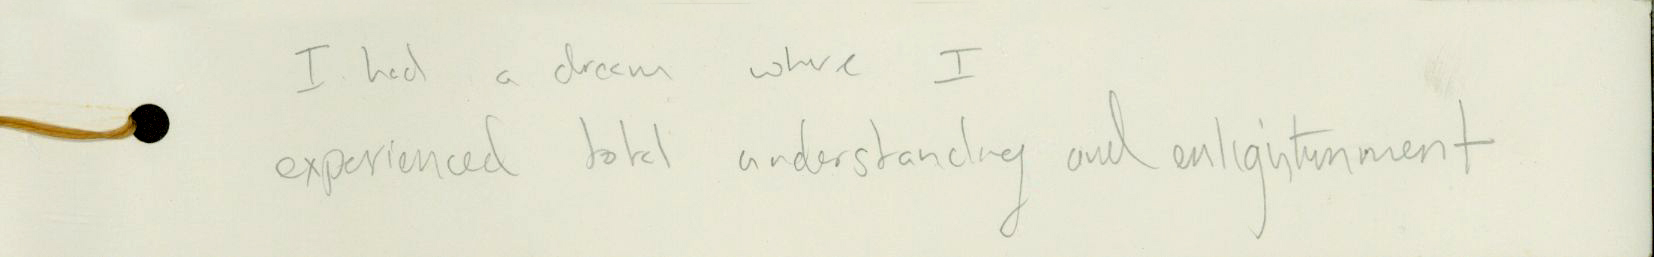 I had a dream where I
experienced total understanding and enlightenment